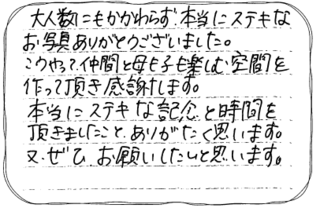 大人数にもかかわらず 本当にステキな
お写真ありがとうございました。
こうやって仲間と母も子も楽しむ空間を
作って頂き感謝します。
本当にステキな記念と時間を
頂きましたこと、ありがたく思います。
又、ぜひ、お願いしたいと思います。